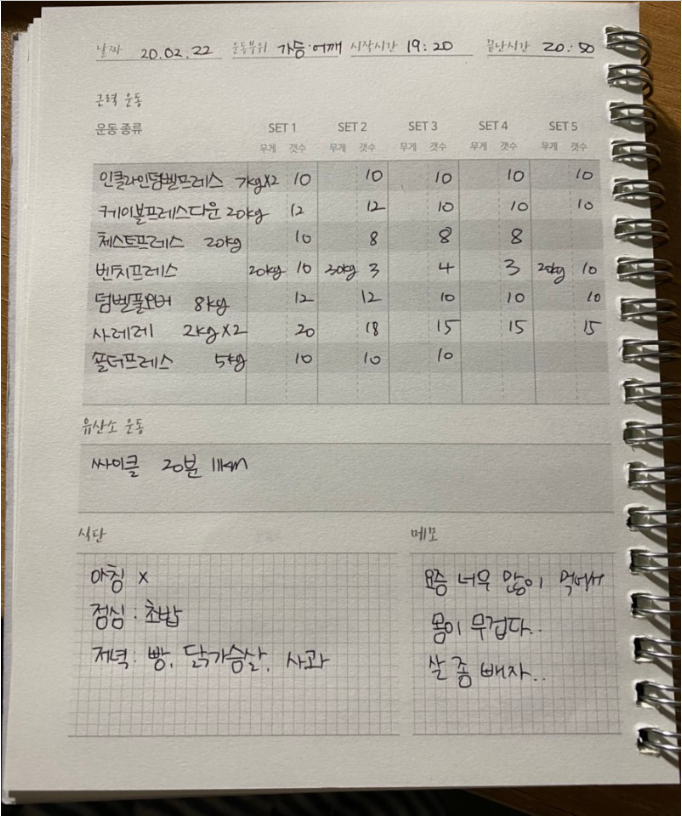 날짜 20.02.22 운동부위 가등·어깨 시작시간 19:20 끝난시간 20:50
근력 운동
운동 종류 SET 1 SET 2 SET 3 SET 4 SET 5
무게 갯수 무게 갯수 무게 갯수 무게 갯수 무게 갯수
인클라인덤벨프레스 7kgX2 10 10 10 10 10
케이블프레스다운 20kg 12 12 10 10 10
체스트프레스 20kg 10 8 8 8
벤치프레스 20kg 10 30kg 3 4 3 20kg 10
덤벨풀오버 8kg 12 12 10 10 10
사레레 2kgX2 20 18 15 15 15
숄더프레스 5kg 10 10 10
유산소 운동
싸이클 20분 11km
식단
아침 x
점심 : 초밥
저녁 : 빵, 닭가슴살, 사과
메모
요즘 너무 많이 먹어서
몸이 무겁다..
살 좀 빼자..